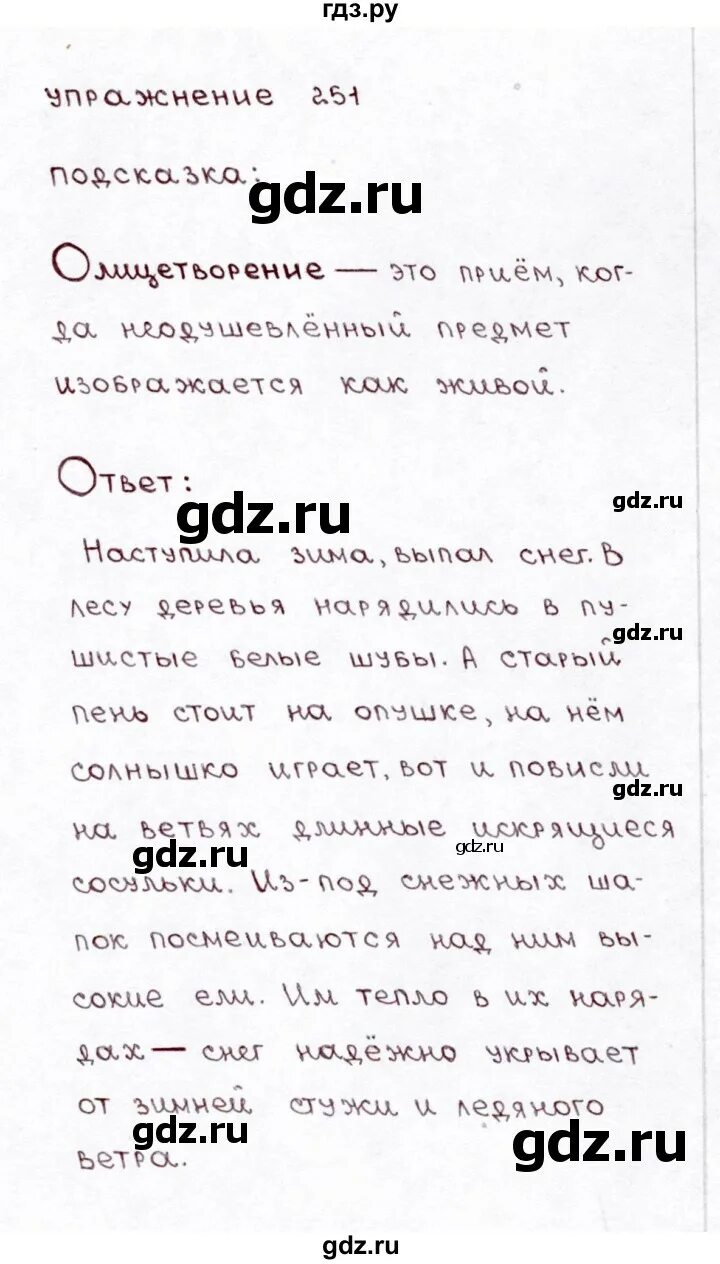 гдз.ру
упражнение 251
подсказка:
gdz.ru
Олицетворение — это приём, ког-
да неодушевлённый предмет
изображается как живой.
Ответ:
gdz.ru
gdz.ru
Наступила зима, выпал снег. В
лесу деревья нарядились в пу-
gdz.ru
шистые белые шубы. А старый
пень стоит на опушке, на нём
солнышко играет, вот и повисли
gdz.ru
на ветвях длинные искрящиеся
gdz.ru
gdz.ru
сосульки. Из-под снежных ша-
пок посмеиваются над ним вы-
сокие ели. Им тепло в их наря-
дах — снег надёжно укрывает
от зимней стужи и ледяного
gdz.ru
gdz.ru
ветра.
gdz.ru